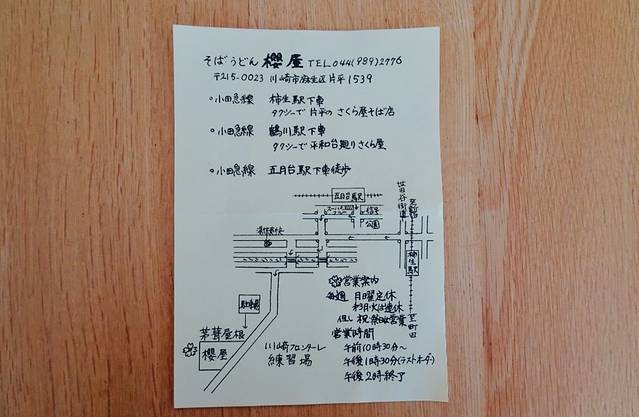 そばうどん 櫻屋 TEL 044(989)2776
〒215-0023 川崎市麻生区片平1539
○小田急線 柿生駅下車
タクシーで片平のさくら屋そば店
○小田急線 鶴川駅下車
タクシーで平和台廻りさくら屋
○小田急線 五月台駅下車徒歩
五月台駅
世田谷街道
至新宿
信号
公園
柿生駅
至町田
駐車場
茅葺屋根
櫻屋
川崎フロンターレ
練習場
営業案内
毎週 月曜定休
第3月・火は連休
但し 祝祭日は営業
営業時間
午前10時30分〜
午後1時30分(ラストオーダー)
午後2時終了